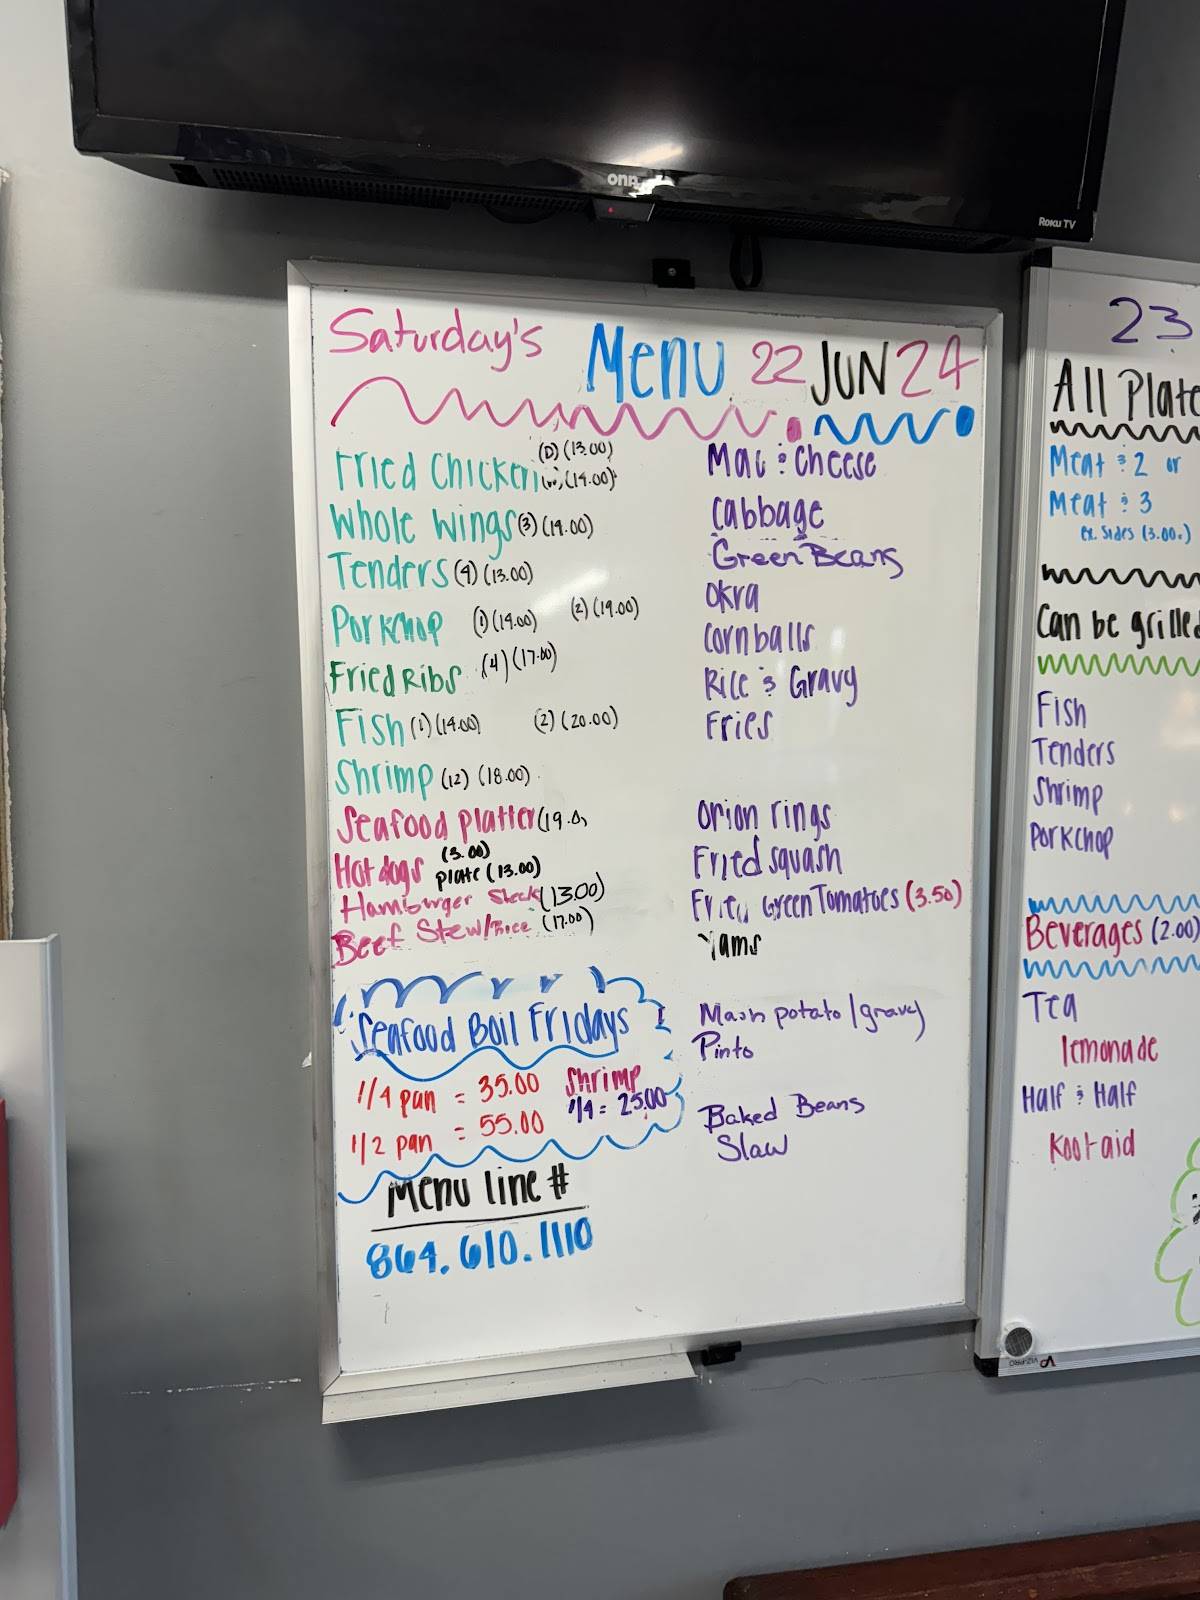 onn
Roku TV
Saturday's Menu 22 JUN 24
Fried Chicken (D) (13.00)
(14.00)
Whole Wings (3) (14.00)
Tenders (4) (13.00)
Porkchop (1) (14.00) (2) (19.00)
Fried Ribs (4) (17.00)
Fish (1) (14.00) (2) (20.00)
Shrimp (12) (18.00)
Seafood platter (19.0
Hot dogs (3.00)
plate (13.00)
Hamburger Steak (13.00)
Beef Stew/Rice (17.00)
Seafood Boil Fridays
1/4 pan = 35.00
1/2 pan = 55.00
Shrimp
1/4 = 25.00
Menu line #
864.610.1110
Mac & Cheese
Cabbage
Green Beans
Okra
Cornballs
Rice & Gravy
Fries
Onion rings
Fried squash
Fried Green Tomatoes (3.50)
Yams
Mash potato/gravy
Pinto
Baked Beans
Slaw
23
All Plate
Meat & 2 or
Meat & 3
ex. Sides (3.00)
Can be grilled
Fish
Tenders
Shrimp
Porkchop
Beverages (2.00)
Tea
lemonade
Half & Half
Koolaid
VIZ-PRO